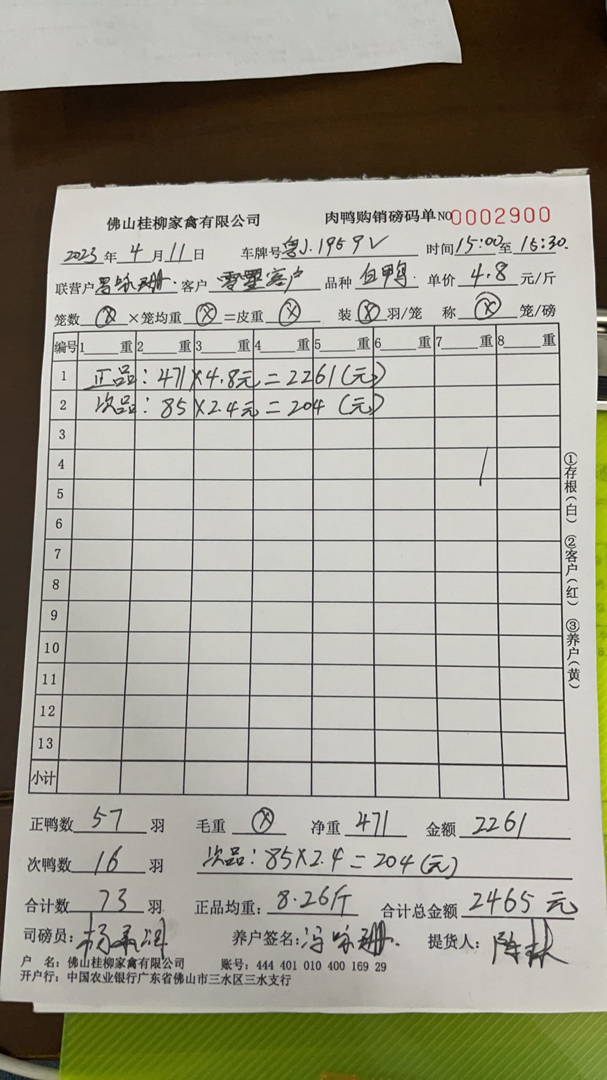 佛山桂柳家禽有限公司 肉鸭购销磅码单 NO 0002900
2023年 4 月 11 日 车牌号 粤J.1959V 时间 15:00 至 15:30.
联营户 咏珊. 客户 客户 品种 白鸭. 单价 4.8 元/斤
笼数 ⓧ ×笼均重 ⓧ =皮重 ⓧ 装 ⓧ 羽/笼 称 ⓧ 笼/磅
编号 1 重 2 重 3 重 4 重 5 重 6 重 7 重 8 重
1 正品: 471×4.8元=2261(元)
2 次品: 85×2.4元=204(元)
3
4
5
6
7
8
9
10
11
12
13
小计
①存根(白) ②客户(红) ③养户(黄)
正鸭数 57 羽 毛重 ⓧ 净重 471 金额 2261
次鸭数 16 羽 次品: 85×2.4=204(元)
合计数 73 羽 正品均重: 8.26斤 合计总金额 2465 元
司磅员: 杨 养户签名: 冯咏珊. 提货人: 陈林
户 名: 佛山桂柳家禽有限公司 账号: 444 401 010 400 169 29
开户行: 中国农业银行广东省佛山市三水区三水支行